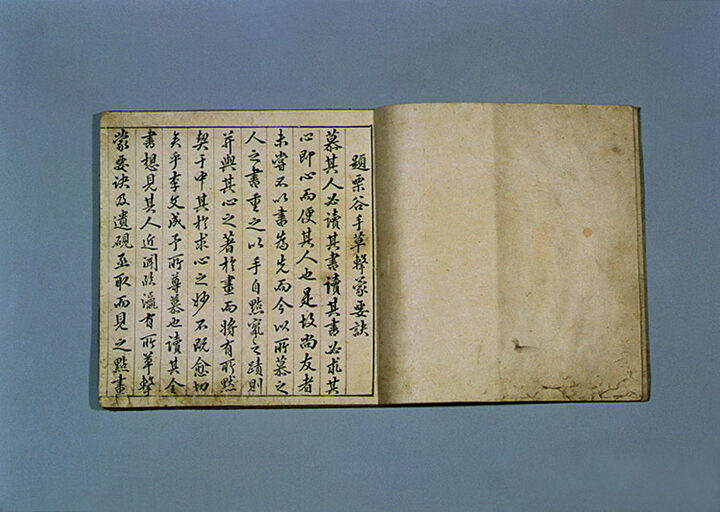 題栗谷手草擊蒙要訣
慕其人必讀其書讀其書必求其
心即心而便其人也是故尚友者
未嘗不以書爲先而今以所慕之
人之書重之以手自點竄之蹟則
幷與其心之著於畫而將有所默
契于中其於求心之妙不旣愈切
矣乎李文成予所尊慕也讀其全
書想見其人近聞臨瀛有所草擊
蒙要訣及遺硯亟取而見之點畫